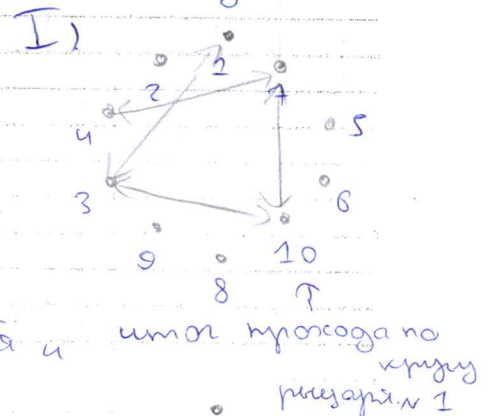 I)
1
2
7
4
5
3
6
9
10
8
я и итог прохода по
кругу
рыцаря № 1